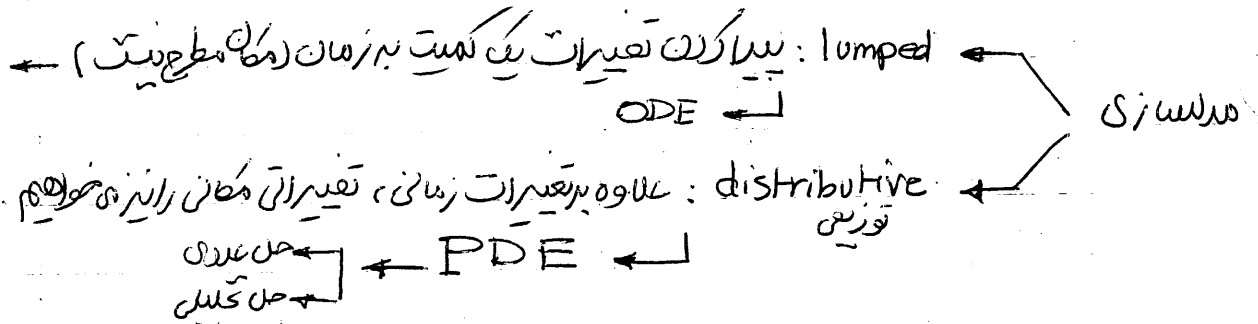 lumped : پیدا کردن تغییرات یک کمیت به زمان (مکان مطرح نیست) ←
ODE
مدلسازی
distributive : علاوه بر تغییرات زمانی، تغییراتی مکانی را نیز می‌خواهیم
توزیعی
PDE
حل عددی
حل تحلیلی